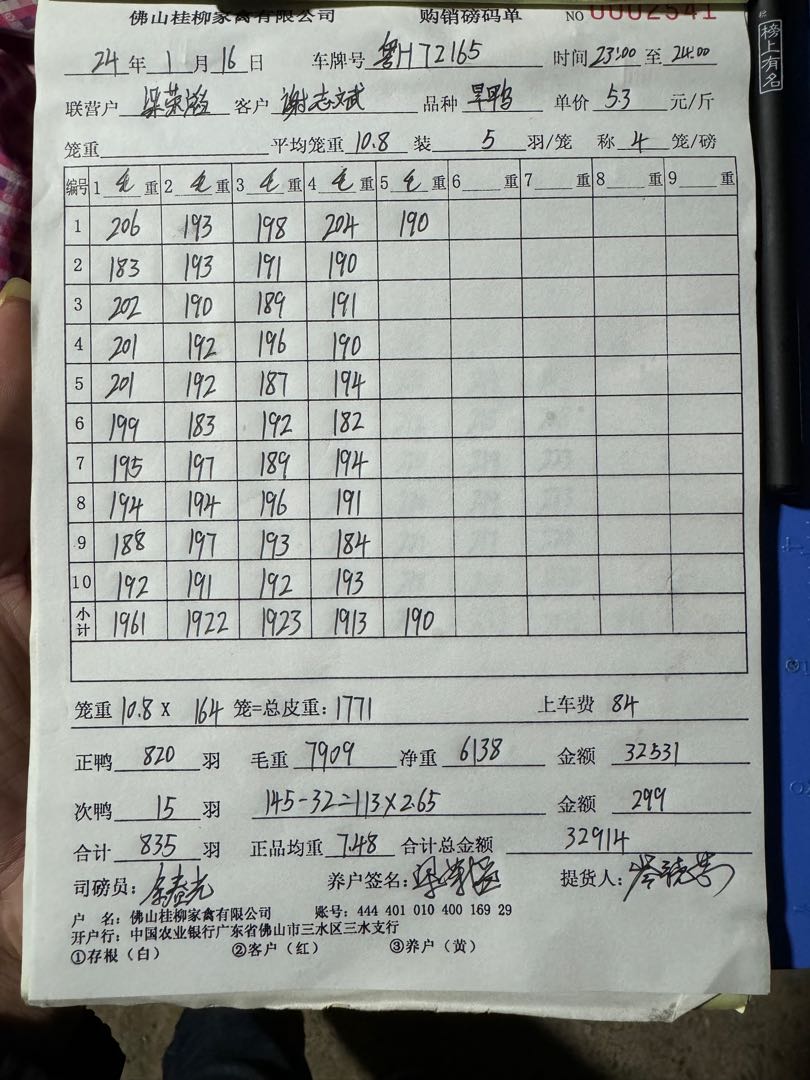 佛山桂柳家禽有限公司 购销磅码单 NO 0002541
24年1月16日 车牌号 粤H72165 时间 23:00 至 24:00
榜上有名
联营户 梁荣 客户 谢志斌 品种 旱鸭 单价 5.3 元/斤
笼重 平均笼重 10.8 装 5 羽/笼 称 4 笼/磅
编号 1 毛 重 2 毛 重 3 毛 重 4 毛 重 5 毛 重 6 重 7 重 8 重 9 重
1 206 193 198 204 190
2 183 193 191 190
3 202 190 189 191
4 201 192 196 190
5 201 192 187 194
6 199 183 192 182
7 195 197 189 194
8 194 194 196 191
9 188 197 193 184
10 192 191 192 193
小计 1961 1922 1923 1913 190
笼重 10.8 X 164 笼=总皮重：1771 上车费 84
正鸭 820 羽 毛重 7909 净重 6138 金额 32531
次鸭 15 羽 145-32=113×2.65 金额 299
合计 835 羽 正品均重 7.48 合计总金额 32914
司磅员： 养户签名： 提货人：
户 名：佛山桂柳家禽有限公司 账号：444 401 010 400 169 29
开户行：中国农业银行广东省佛山市三水区三水支行
①存根（白） ②客户（红） ③养户（黄）